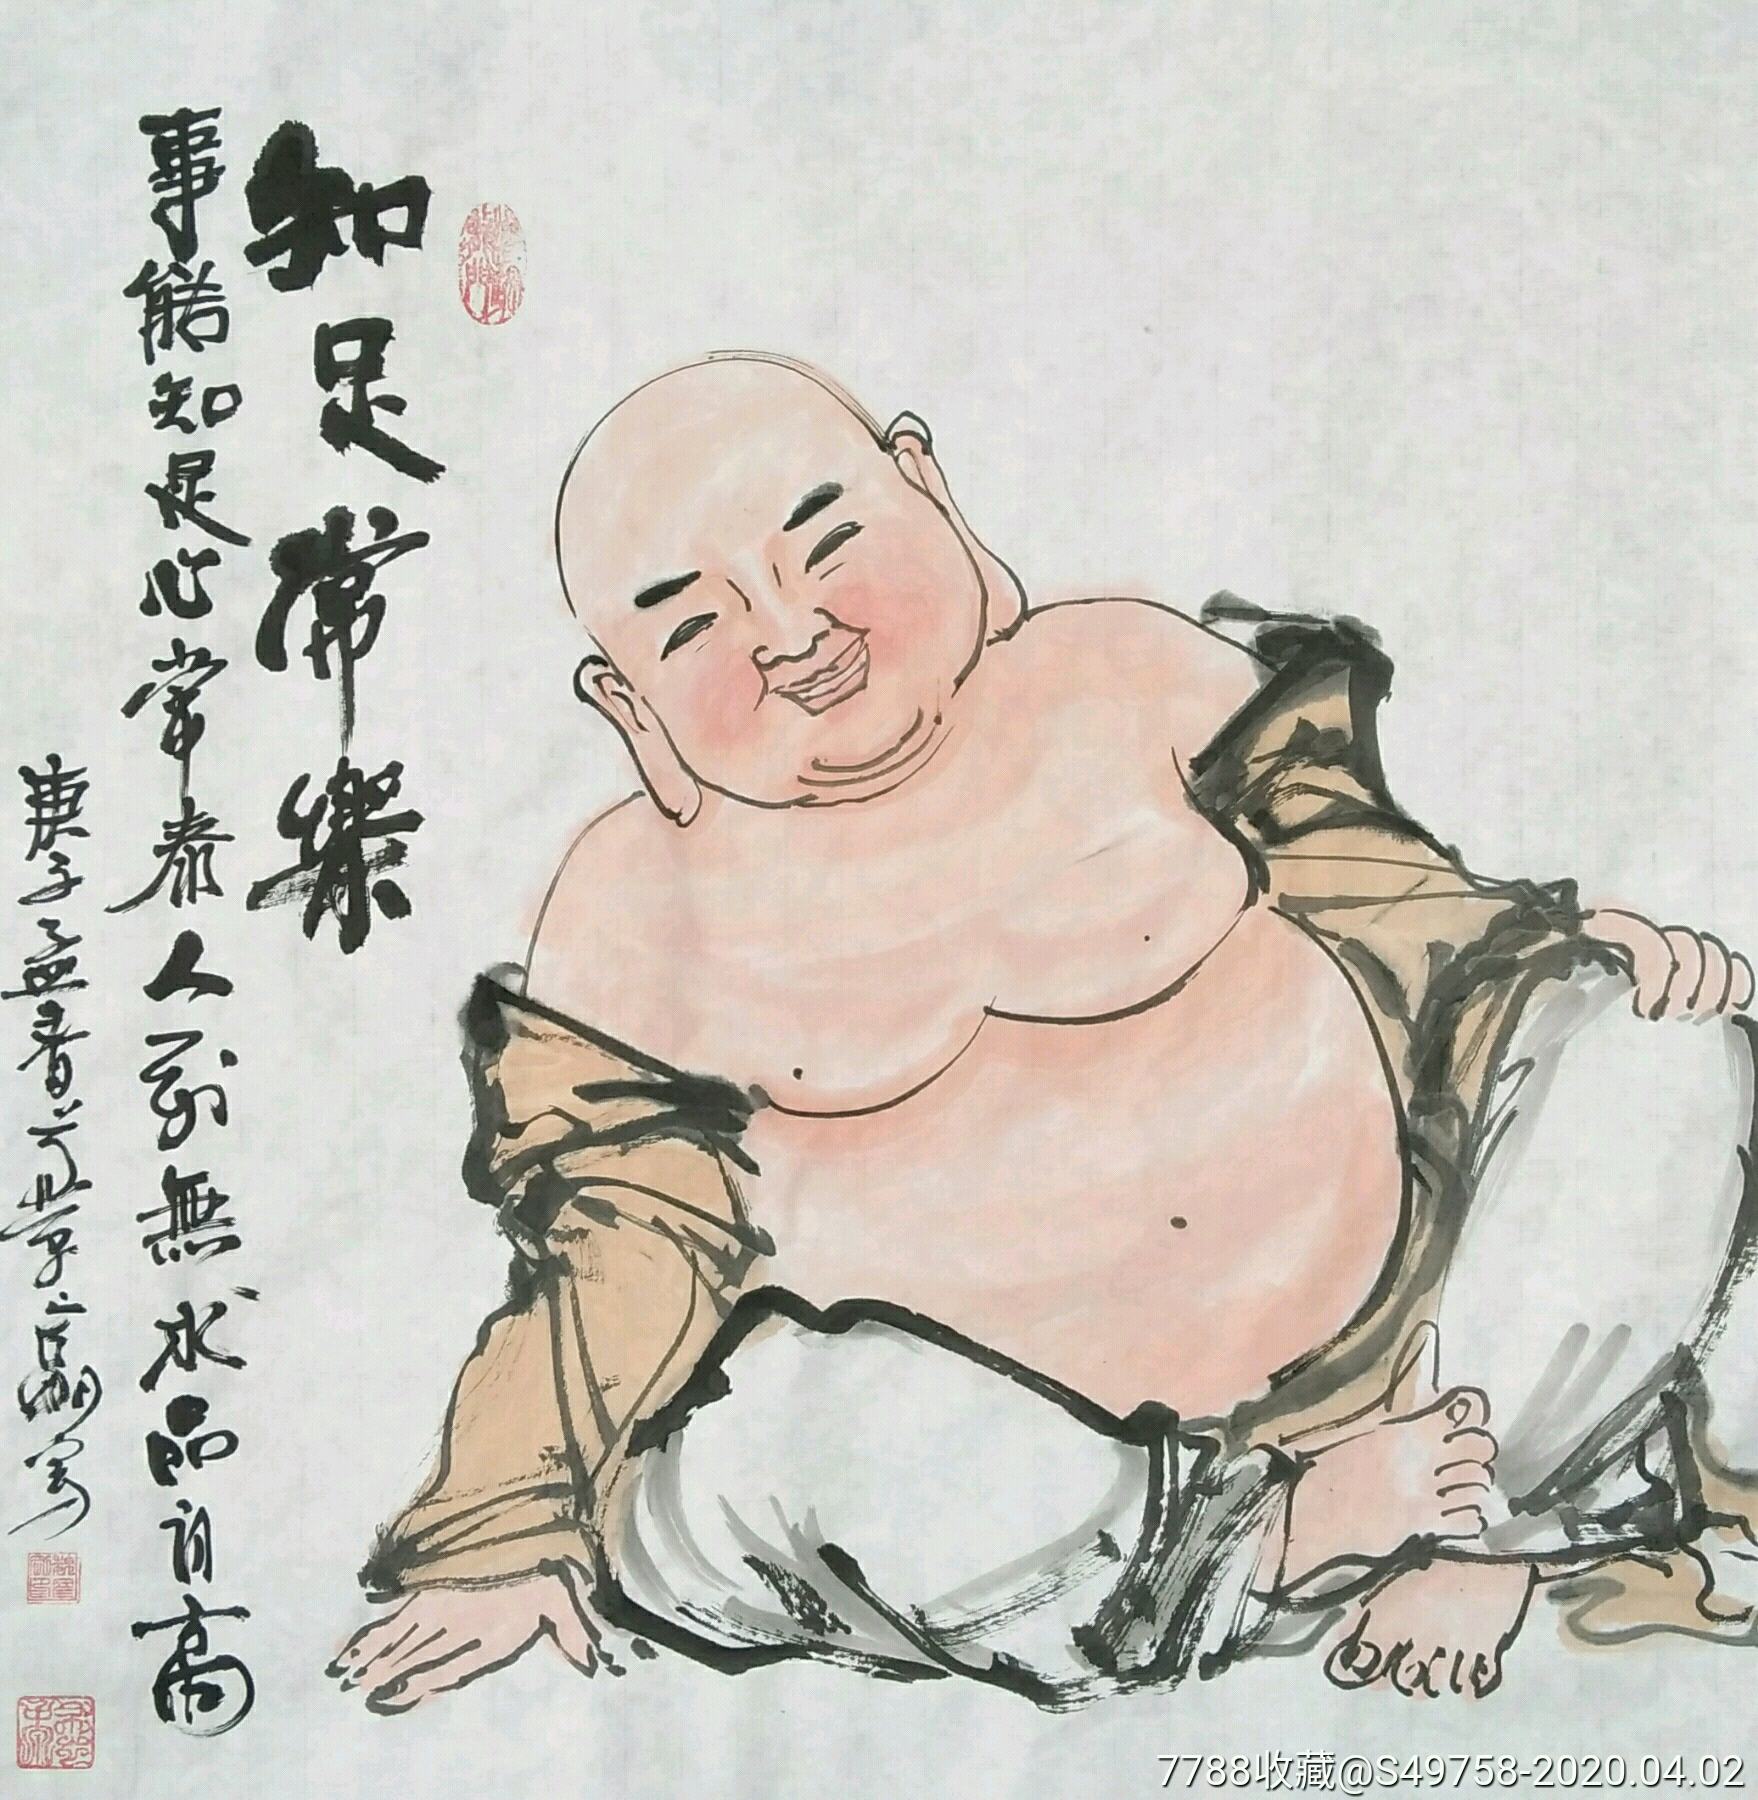 知足常樂
事能知足心常泰人到無求品自高
庚子孟春
7788收藏@S49758-2020.04.02